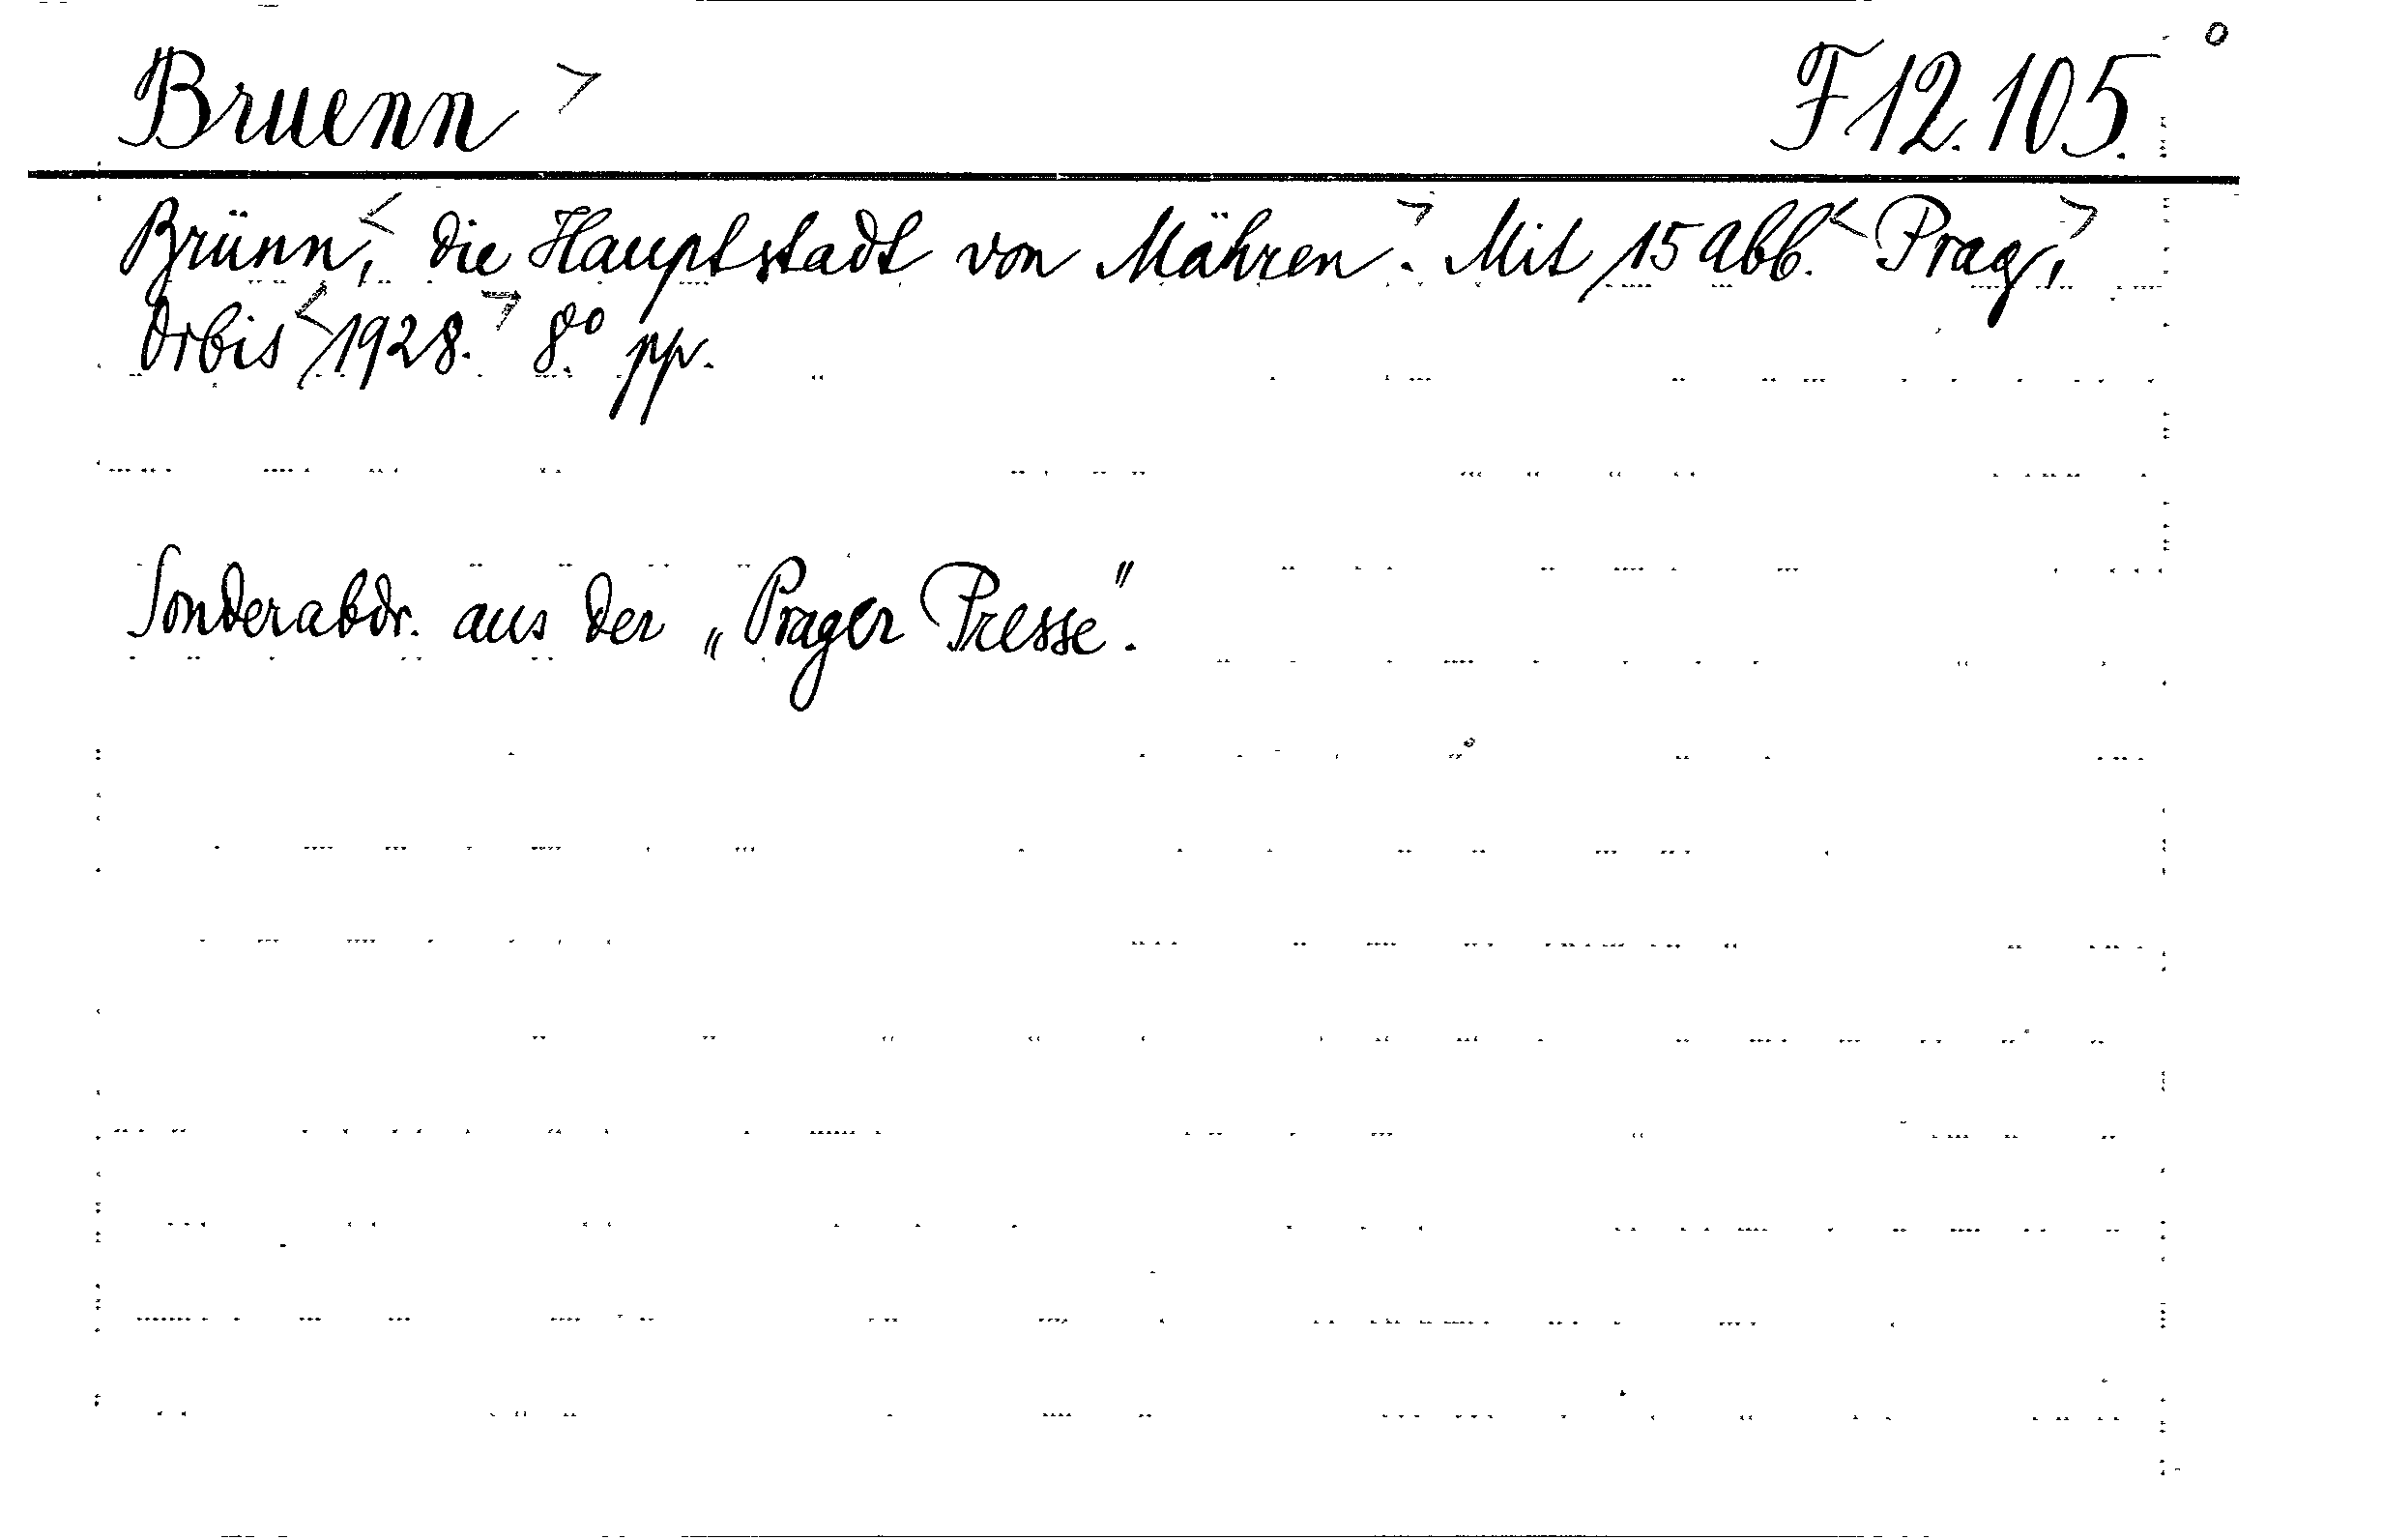 Bruenn > F 12.105.
Brünn,< die Hauptstadt von Mähren.> Mit 15 Abb.< Prag,>
Orbis< 1928.> 8.° pp.
Sonderabdr. aus der „Prager Presse".